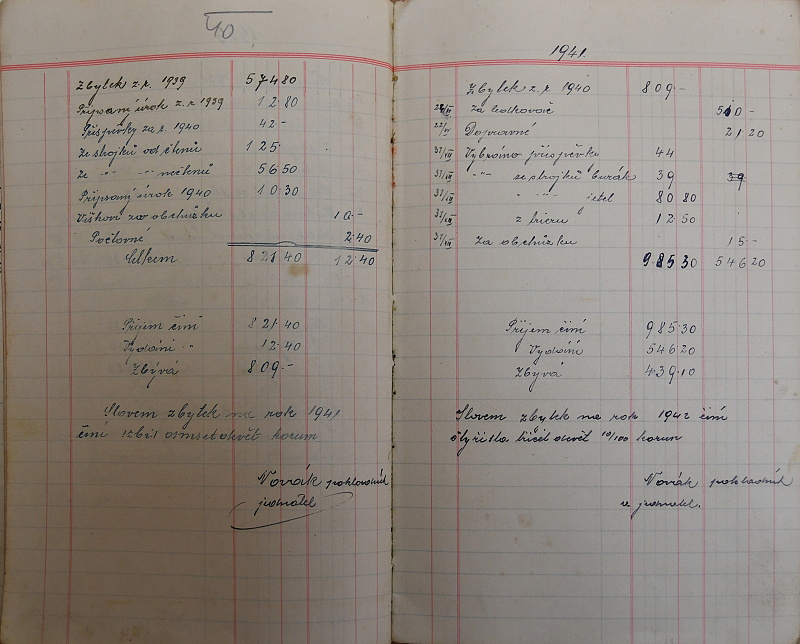 40
Zbytek z.r. 1939 574 80
Připsaný úrok z.r. 1939 12.80
Příspěvky za r. 1940 42 -
Ze strojků od členů 125.
Ze -"- -"- nečlenů 56 50
Připsaný úrok 1940 10.30
za obchůzku 10.-
Poštovné 2.40
Celkem 821 40 12.40
Příjem činí 821.40
Vydání " 12.40
Zbývá 809.-
Slovem zbytek na rok 1941
činí osmsetdevět korun
Novák pokladník
jednatel
1941.
Zbytek z.r. 1940 809 -
za 510 -
Dopravné 21.20
31/XII Vybráno příspěvky 44
31/XII -"- ze strojků burák 39 39
31/XII -"- -"- jetel 80 80
31/XII z trieru 12.50
31/XII Za obchůzku 15 -
985 30 546 20
Příjem činí 985.30
Vydání 546 20
Zbývá 439.10
Slovem zbytek na rok 1942 činí
čtyřista třicet devět 10/100 korun
Novák pokladník
a jednatel.